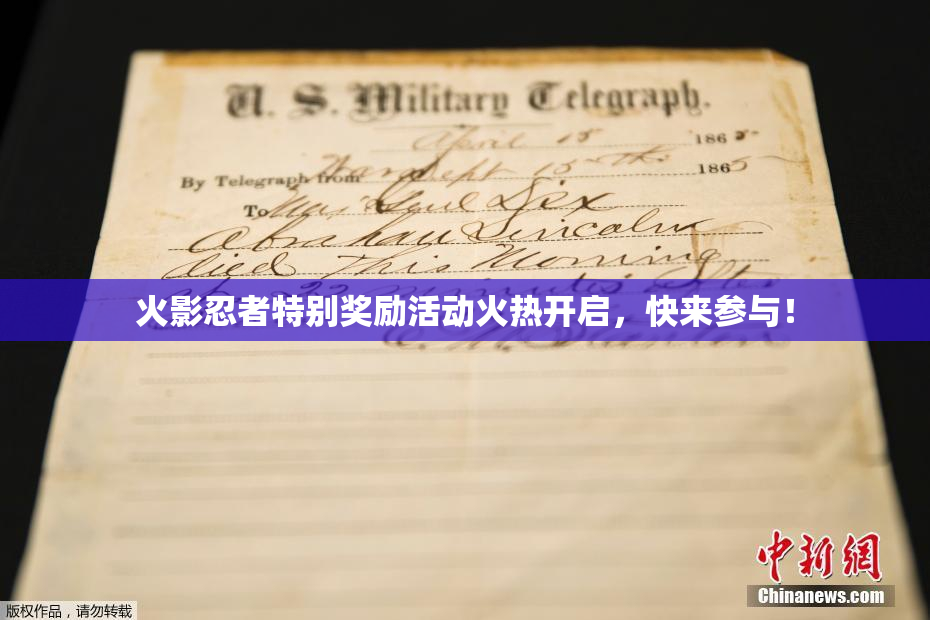 U. S. Military Telegraph.
April 15 1865
By Telegraph from War Dept 15th 1865
To Maj Genl Dix
Abraham Lincoln
died This Morning
at 22 minutes after
火影忍者特别奖励活动火热开启，快来参与！
E. M. Stanton
中新网
Chinanews.com
版权作品，请勿转载